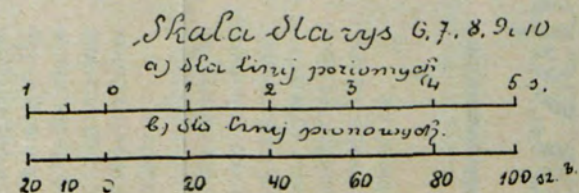 Skala dla rys 6, 7, 8, 9, 10
a) dla linij poziomych
1 0 1 2 3 4 5 s.
b) dla linij pionowych.
20 10 0 20 40 60 80 100 sz. b.